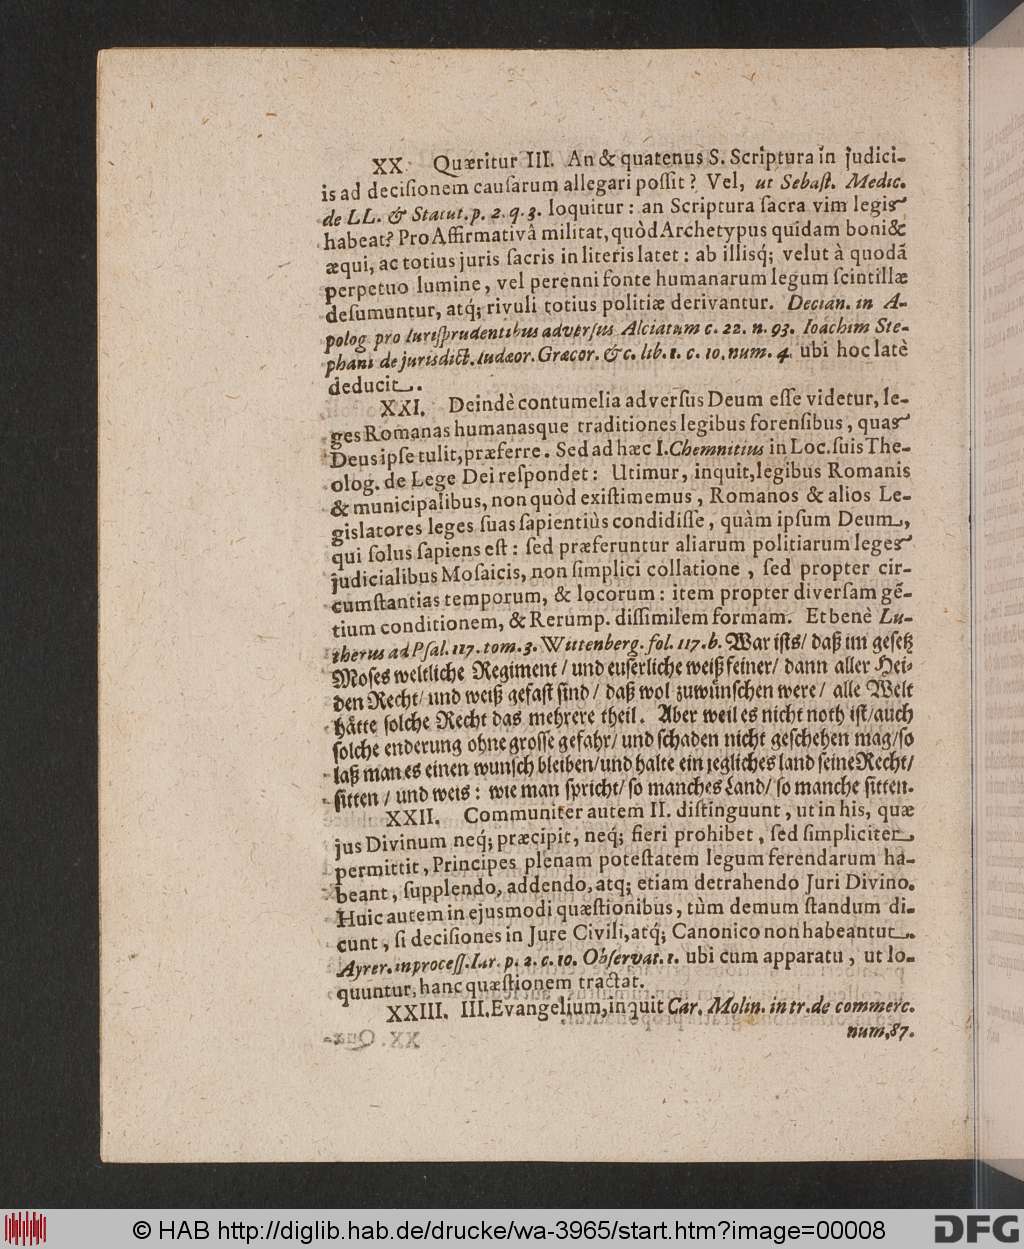 XX. Quæritur III. An & quatenus S. Scriptura in judici-
is ad deciſionem cauſarum allegari poſſit? Vel, ut Sebaſt. Medic.
de LL. & Statut. p. 2. q. 3. loquitur: an Scriptura ſacra vim legis
habeat? Pro Affirmativâ militat, quòd Archetypus quidam boni &
æqui, ac totius juris ſacris in literis latet: ab illisq́; velut à quodã
perpetuo lumine, vel perenni fonte humanarum legum ſcintillæ
deſumuntur, atq́; rivuli totius politiæ derivantur. Decian. in A-
polog. pro Iuriſprudentibus adverſus Alciatum c. 22. n. 93. Ioachim Ste-
phani de jurisdict. Iudæor. Græcor. &c. lib. 1. c. 10. num. 4. ubi hoc latè
deducit.
XXI. Deindè contumelia adverſus Deum eſſe videtur, le-
ges Romanas humanasque traditiones legibus forenſibus, quas
Deus ipſe tulit, præferre. Sed ad hæc I. Chemnitius in Loc. ſuis The-
olog. de Lege Dei reſpondet: Utimur, inquit, legibus Romanis
& municipalibus, non quòd exiſtimemus, Romanos & alios Le-
gislatores leges ſuas ſapientiùs condidiſſe, quàm ipſum Deum,
qui ſolus ſapiens eſt: ſed præferuntur aliarum politiarum leges
judicialibus Moſaicis, non ſimplici collatione, ſed propter cir-
cumſtantias temporum, & locorum: item propter diverſam gẽ-
tium conditionem, & Rerump. diſſimilem formam. Et benè Lu-
therus ad Pſal. 117. tom. 3. Wittenberg. fol. 117. b. War iſts / daß im geſetz
Moſes weltliche Regiment / und euſerliche weiß feiner / dann aller Hei-
den Recht / und weiß gefaſt ſind / daß wol zuwünſchen were / alle Welt
hätte ſolche Recht das mehrere theil. Aber weil es nicht noth iſt / auch
ſolche enderung ohne groſſe gefahr / und ſchaden nicht geſchehen mag / ſo
laß man es einen wunſch bleiben / und halte ein jegliches land ſeine Recht /
ſitten / und weis: wie man ſpricht / ſo manches Land / ſo manche ſitten.
XXII. Communiter autem II. diſtinguunt, ut in his, quæ
jus Divinum neq́; præcipit, neq́; fieri prohibet, ſed ſimpliciter
permittit, Principes plenam poteſtatem legum ferendarum ha-
beant, ſupplendo, addendo, atq; etiam detrahendo Juri Divino.
Huic autem in ejusmodi quæſtionibus, tùm demum ſtandum di-
cunt, ſi deciſiones in Jure Civili, atq́; Canonico non habeantur.
Ayrer. in proceſſ. Iur. p. 2. c. 10. Obſervat. 1. ubi cum apparatu, ut lo-
quuntur, hanc quæſtionem tractat.
XXIII. III. Evangelium, inquit Car. Molin. in tr. de commerc.
num. 87.
© HAB http://diglib.hab.de/drucke/wa-3965/start.htm?image=00008
DFG